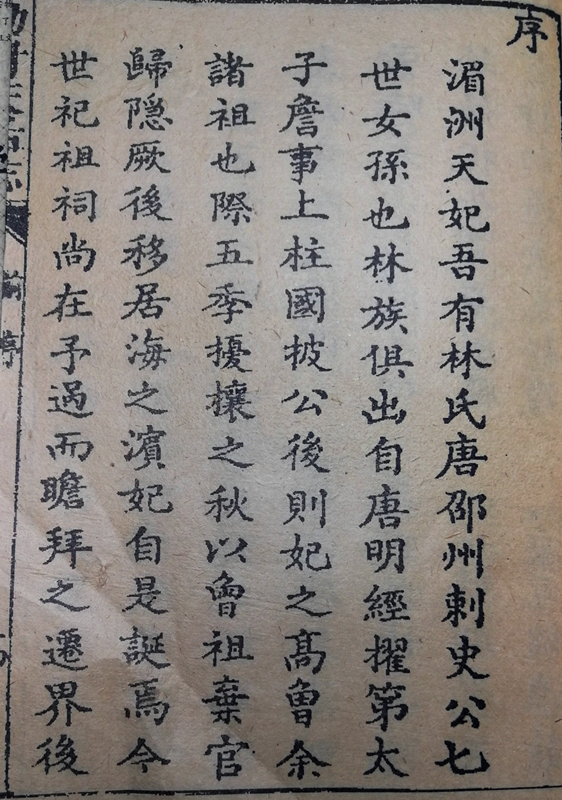 序
湄洲天妃吾有林氏唐邵州刺史公七
世女孫也林族俱出自唐明經擢第太
子詹事上柱國披公後則妃之高曾余
諸祖也際五季擾攘之秋以曾祖棄官
歸隠厥後移居海之濱妃自是誕焉今
世祀祖祠尚在予過而瞻拜之遷界後